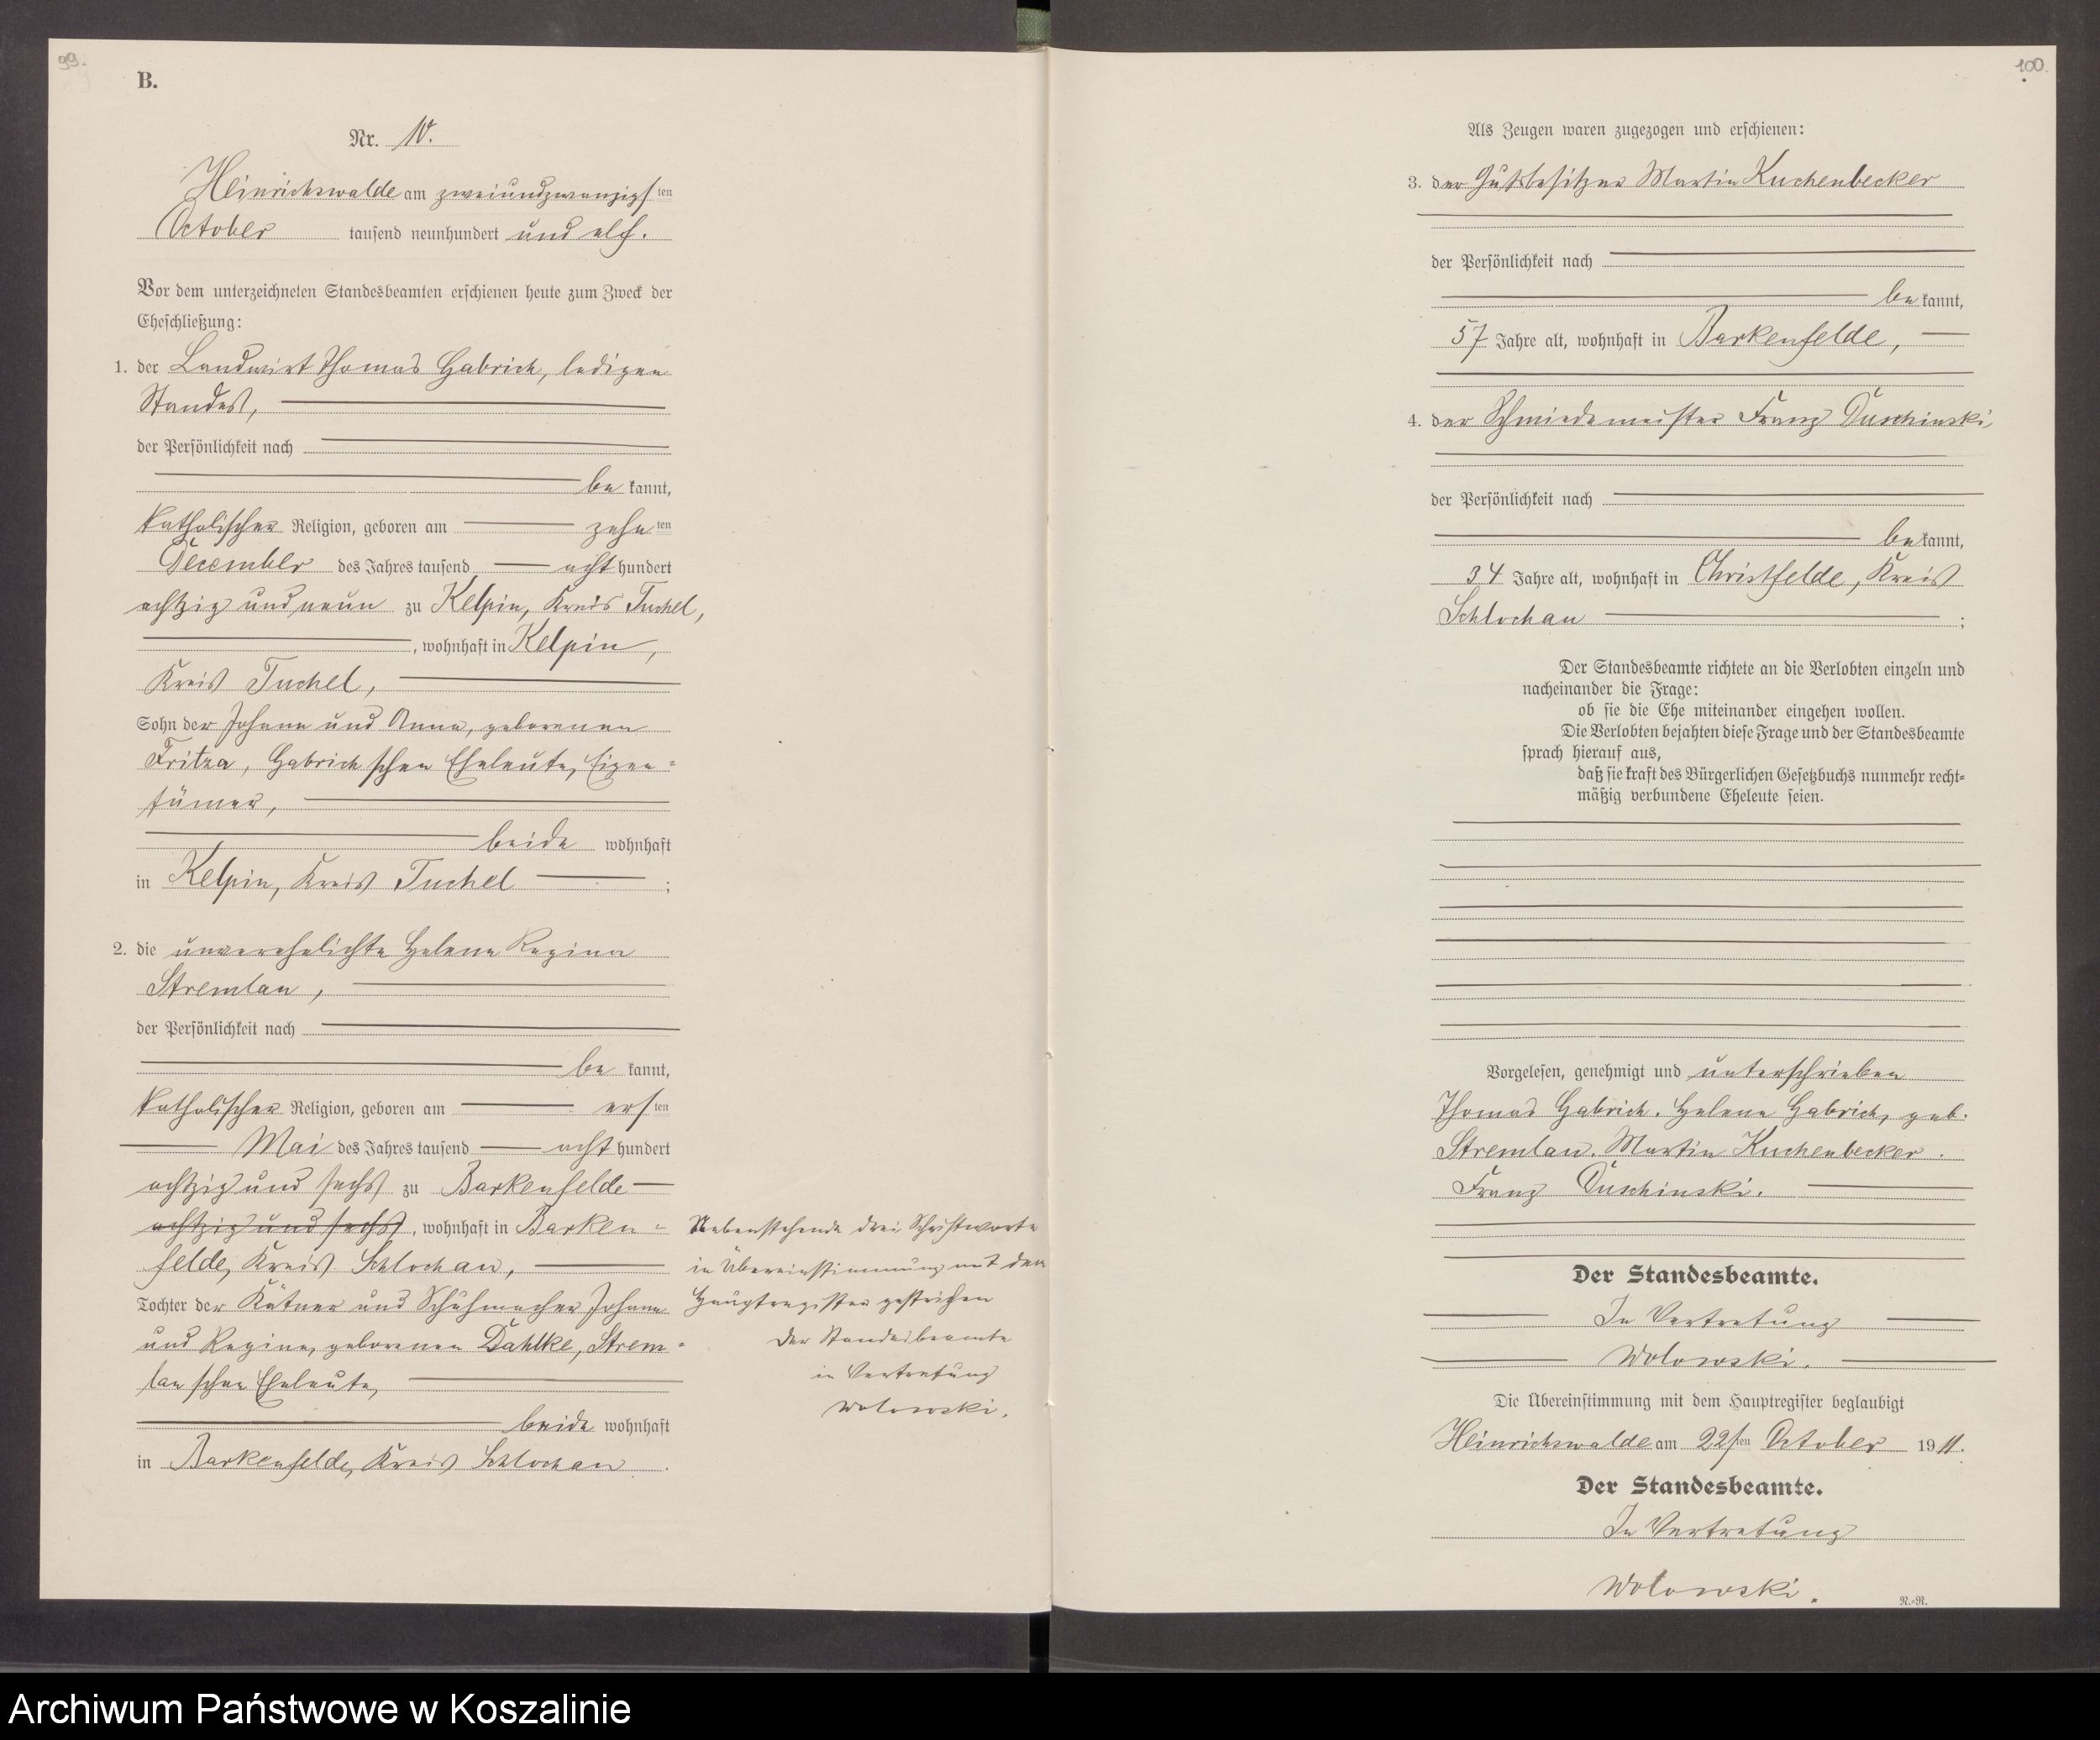 99.
B.
Nr. 10.
Heinrichswalde am zweiundzwanzigsten
October tausend neunhundert und elf.
Vor dem unterzeichneten Standesbeamten erschienen heute zum Zweck der
Eheschließung:
1. der Landwirt Thomas Gabrich, ledigen
Standes,
der Persönlichkeit nach
be kannt,
katholischer Religion, geboren am zehnten
December des Jahres tausend acht hundert
achtzig und neun zu Kelpin, Kreis Tuchel,
, wohnhaft in Kelpin,
Kreis Tuchel,
Sohn der Johann und Anna, geborenen
Fritza, Gabrich schen Eheleute, Eigen=
tümer,
beide wohnhaft
in Kelpin, Kreis Tuchel ;
2. die unverehelichte Helene Regina
Stremlau,
der Persönlichkeit nach
be kannt,
katholischer Religion, geboren am ersten
Mai des Jahres tausend acht hundert
achtzig und sechs zu Barkenfelde
achtzig und sechs, wohnhaft in Barken=
felde, Kreis Schlochau,
Tochter der Kätner und Schuhmacher Johann
und Regine, geborenen Dahlke, Strem=
lau schen Eheleute,
beide wohnhaft
in Barkenfelde, Kreis Schlochau.
Nebenstehende drei Schriftworte
in Übereinstimmung mit dem
Hauptregister gestrichen
Der Standesbeamte
in Vertretung
Wolowski.
100.
Als Zeugen waren zugezogen und erschienen:
3. der Gutsbesitzer Martin Kuchenbecker
der Persönlichkeit nach
be kannt,
57 Jahre alt, wohnhaft in Barkenfelde,
4. der Schmiedemeister Franz Duschinski,
der Persönlichkeit nach
be kannt,
34 Jahre alt, wohnhaft in Christfelde, Kreis
Schlochau ;
Der Standesbeamte richtete an die Verlobten einzeln und
nacheinander die Frage:
ob sie die Ehe miteinander eingehen wollen.
Die Verlobten bejahten diese Frage und der Standesbeamte
sprach hierauf aus,
daß sie kraft des Bürgerlichen Gesetzbuchs nunmehr recht=
mäßig verbundene Eheleute seien.
Vorgelesen, genehmigt und unterschrieben
Thomas Gabrich. Helene Gabrich, geb.
Stremlau. Martin Kuchenbecker.
Franz Duschinski.
Der Standesbeamte.
In Vertretung
Wolowski.
Die Übereinstimmung mit dem Hauptregister beglaubigt
Heinrichswalde am 22sten October 1911.
Der Standesbeamte.
In Vertretung
Wolowski.
N.=R.
Archiwum Państwowe w Koszalinie